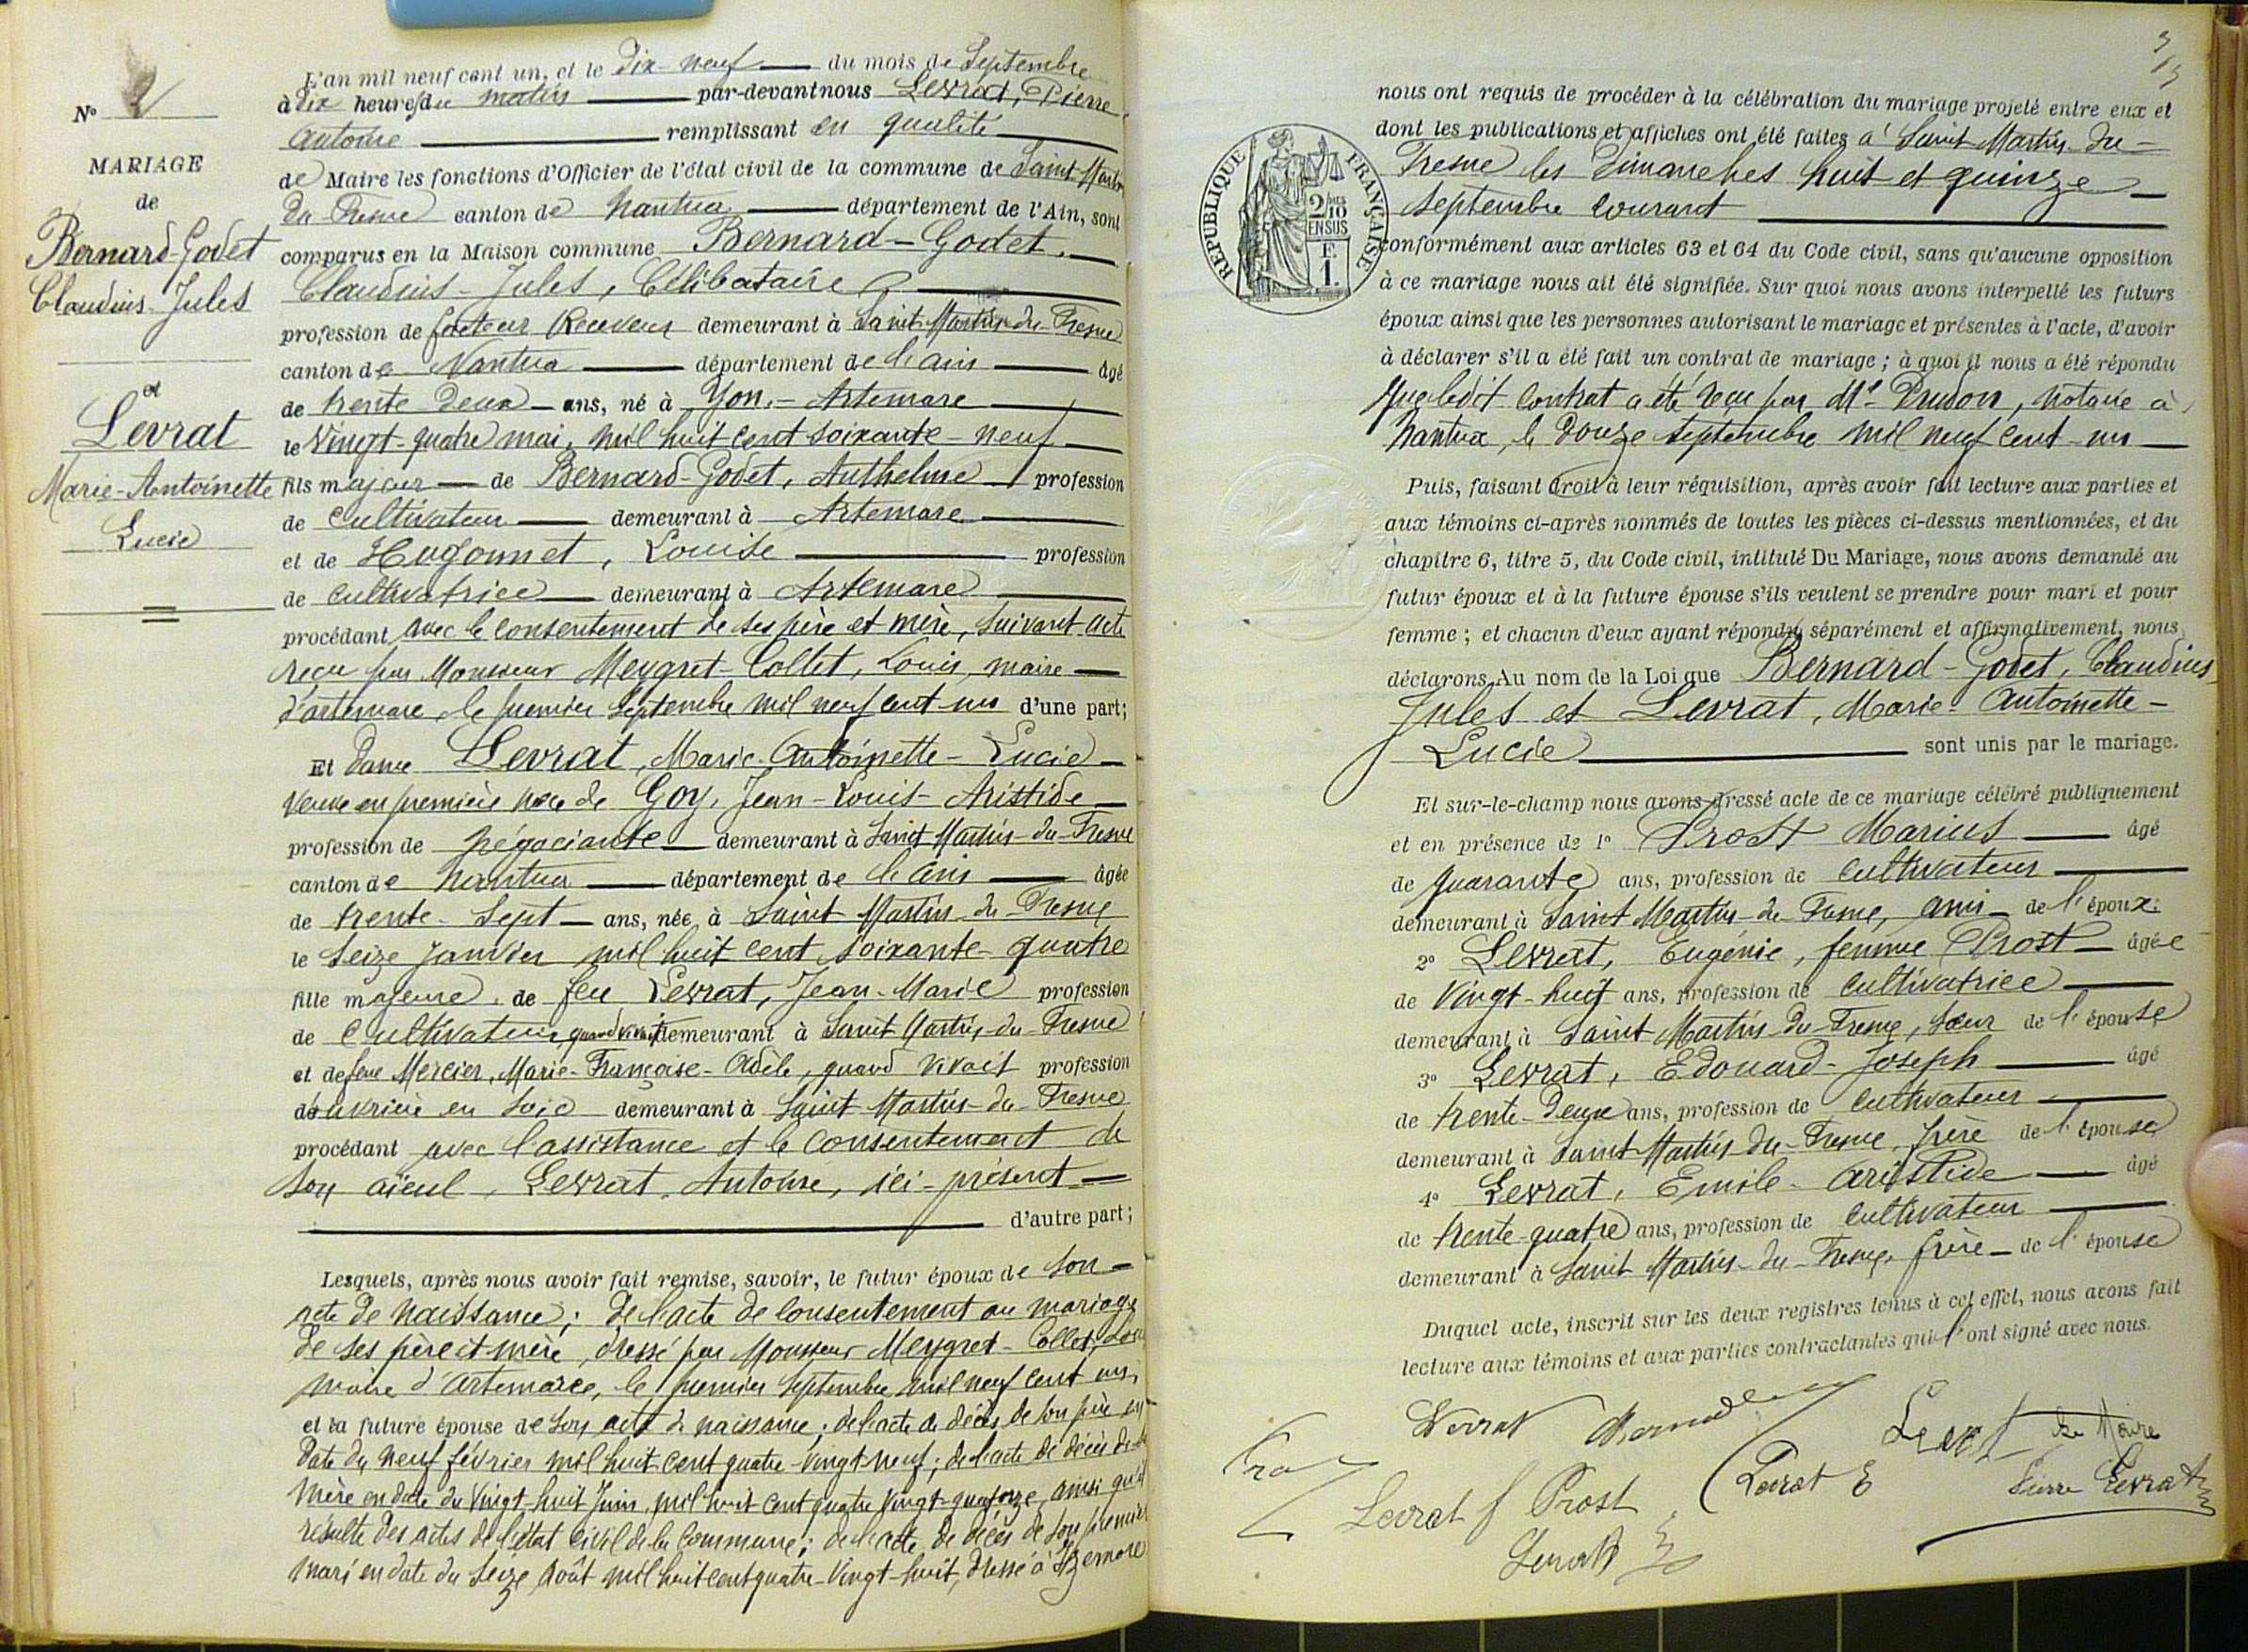 N° 2
MARIAGE
de
Bernard-Godet
Claudius-Jules
et
Levrat
Marie-Antoinette
Lucie
L'an mil neuf cent un, et le dix-neuf du mois de Septembre
à dix heures du matin par-devant nous Levrat, Pierre
Antoine remplissant en qualité
de Maire les fonctions d'Officier de l'état civil de la commune de Saint Martin
du Fresne canton de Nantua département de l'Ain, sont
comparus en la Maison commune Bernard-Godet,
Claudius-Jules, Célibataire
profession de facteur Receveur demeurant à Saint-Martin-du-Fresne
canton de Nantua département de l'ain âgé
de trente deux ans, né à Yon-Artemare
le Vingt-quatre mai, mil huit cent soixante-neuf
fils majeur de Bernard-Godet, Anthelme profession
de cultivateur demeurant à Artemare
et de Hugonnet, Louise profession
de cultivatrice demeurant à Artemare
procédant avec le consentement de ses père et mère, suivant acte
reçu par Monsieur Meygret-Collet, Louis, maire
d'artemare, le premier Septembre mil neuf cent un d'une part;
Et dame Levrat, Marie-Antoinette-Lucie
veuve en première noce de Goy, Jean-Louis-Aristide
profession de négociante demeurant à Saint Martin-du-Fresne
canton de Nantua département de l'ain âgée
de trente-Sept ans, née à Saint Martin-du-Fresne
le Seize Janvier mil huit cent soixante-quatre
fille majeure de feu Levrat, Jean-Marie profession
de Cultivateur quand vivait demeurant à Saint Martin-du-Fresne
et de feue Mercier, Marie-Françoise-Adèle, quand vivait profession
d'ouvrière en soie demeurant à Saint-Martin-du-Fresne
procédant avec l'assistance et le consentement de
son aïeul, Levrat, Antoine, ici-présent
d'autre part;
Lesquels, après nous avoir fait remise, savoir, le futur époux de son
acte de naissance; de l'acte de consentement au mariage
de ses père et mère, dressé par Monsieur Meygret-Collet, Louis
maire d'artemare, le premier Septembre mil neuf cent un;
et la future épouse de son acte de naissance; de l'acte de décès de son père en
date du neuf février mil huit cent quatre-vingt-neuf; de l'acte de décès de sa
mère en date du vingt-huit Juin, mil huit cent quatre vingt-quatorze, ainsi qu'il
résulte des actes de l'état civil de la commune; de l'acte de décès de son premier
mari en date du Seize Août mil huit cent quatre-vingt-huit, dressé à Izernore
nous ont requis de procéder à la célébration du mariage projeté entre eux et
dont les publications et affiches ont été faites à Saint Martin-du-
Fresne les Dimanches huit et quinze
septembre courant
RÉPUBLIQUE FRANÇAISE
2/10 EN SUS
F. 1.
conformément aux articles 63 et 64 du Code civil, sans qu'aucune opposition
à ce mariage nous ait été signifiée. Sur quoi nous avons interpellé les futurs
époux ainsi que les personnes autorisant le mariage et présentes à l'acte, d'avoir
à déclarer s'il a été fait un contrat de mariage; à quoi il nous a été répondu
que ledit contrat a été reçu par Me Prudon, notaire à
Nantua, le douze septembre mil neuf cent-un
Puis, faisant droit à leur réquisition, après avoir fait lecture aux parties et
aux témoins ci-après nommés de toutes les pièces ci-dessus mentionnées, et du
chapitre 6, titre 5, du Code civil, intitulé Du Mariage, nous avons demandé au
futur époux et à la future épouse s'ils veulent se prendre pour mari et pour
femme; et chacun d'eux ayant répondu séparément et affirmativement, nous
déclarons Au nom de la Loi que Bernard-Godet, Claudius
Jules et Levrat, Marie-Antoinette-
Lucie sont unis par le mariage.
Et sur-le-champ nous avons dressé acte de ce mariage célébré publiquement
et en présence de 1° Prost Marius âgé
de quarante ans, profession de cultivateur
demeurant à Saint Martin-du-Fresne, ami de l'époux.
2° Levrat, Eugénie, femme Prost âgée
de vingt-huit ans, profession de cultivatrice
demeurant à Saint Martin-du-Fresne, sœur de l'épouse
3° Levrat, Edouard-Joseph âgé
de trente-deux ans, profession de cultivateur
demeurant à Saint-Martin-du-Fresne, frère de l'épouse
4° Levrat, Emile-Aristide âgé
de trente-quatre ans, profession de cultivateur
demeurant à Saint Martin-du-Fresne, frère de l'épouse
Duquel acte, inscrit sur les deux registres tenus à cet effet, nous avons fait
lecture aux témoins et aux parties contractantes qui l'ont signé avec nous.
Levrat
Levrat Le Maire
Levrat f Prost Levrat E Pierre Levrat
Levrat